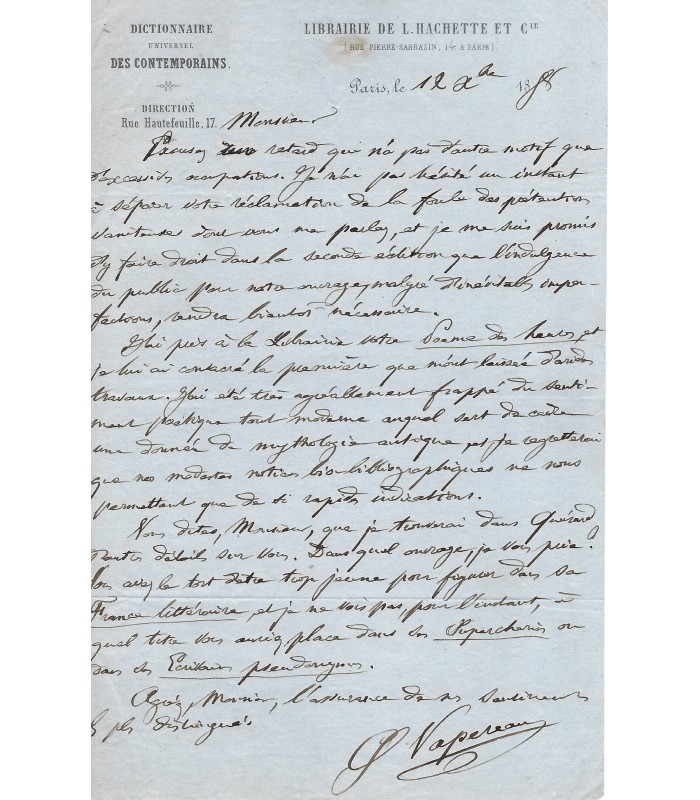 DICTIONNAIRE
UNIVERSEL
DES CONTEMPORAINS.
DIRECTION
Rue Hautefeuille, 17.
LIBRAIRIE DE L. HACHETTE ET Cie
(RUE PIERRE-SARRAZIN, 14 A PARIS).
Paris, le 12 Xbre 1858
Monsieur
Excusez un retard qui n'a pas d'autre motif que
d'excessives occupations. Je n'ai pas hésité un instant
à séparer votre réclamation de la foule des prétentions
vaniteuses dont vous me parlez, et je me suis promis
d'y faire droit dans la seconde édition que l'indulgence
du public pour notre ouvrage, malgré d'inévitables imper-
fections, rendra bientôt nécessaire.
J'ai pris à la Librairie votre Poème des heures, et
je lui ai consacré la première que m'ont laissée d'arides
travaux. J'ai été très agréablement frappé du senti-
ment poétique tout moderne auquel sert de cadre
une donnée de mythologie antique, et je regretterai
que nos modestes notices bio-bibliographiques ne nous
permettent que de si rapides indications.
Vous dites, Monsieur, que je trouverai dans Quérard
d'autres détails sur vous. Dans quel ouvrage, je vous prie.
Vous avez le tort d'être trop jeune pour figurer dans sa
France littéraire, et je ne vois pas, pour l'instant, à
quel titre vous auriez place dans ses Supercheries ou
dans ses Ecrivains pseudonymes.
Agréez, Monsieur, l'assurance de mes sentiments
les plus distingués
G Vapereau